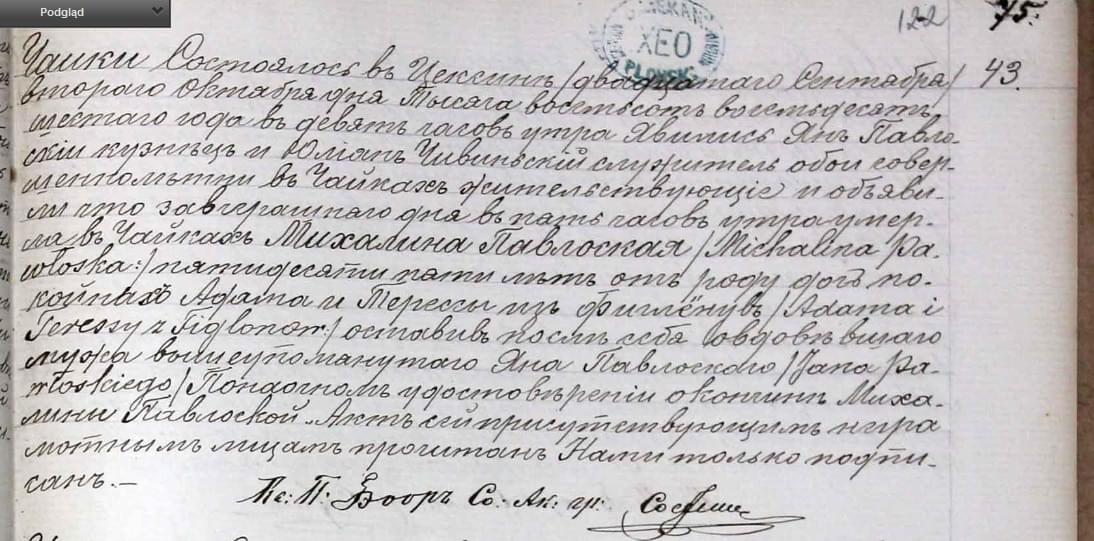 Podgląd
122 75.
DZIEKAN
XEO
PŁOŃSK
43.
Чайки Состоялось въ Цексинѣ /двадцатаго Сентября/
втораго Октября дня Тысяча восемьсотъ восемьдесятъ
шестаго года въ девять часовъ утра Явились Янъ Павло-
скій кузнецъ и Юліанъ служитель обои совер-
шеннолѣтни въ Чайкахъ жительствующіе и объяви-
ли что завчерашнаго дня въ пять часовъ утра умер-
ла въ Чайкахъ Михалина Павлоская /Michalina Pa-
włoska:/ пятидесяти пяти лѣтъ отъ роду дочь по-
койныхъ Адама и Терессы изъ Фиглёнувъ /Adama i
Teressy z Figlonow:/ оставивъ послѣ себя овдовѣвшаго
мужа вышеупомянутаго Яна Павлоскаго /Jana Pa-
włoskiego/ Понаочномъ удостовѣреніи о кончинѣ Миха-
лины Павлоской. Актъ сей присутствующимъ негра
мотнымъ лицамъ прочитанъ Нами только подпи-
санъ.—
Кс: П: Бооръ Со: Ак: гр: